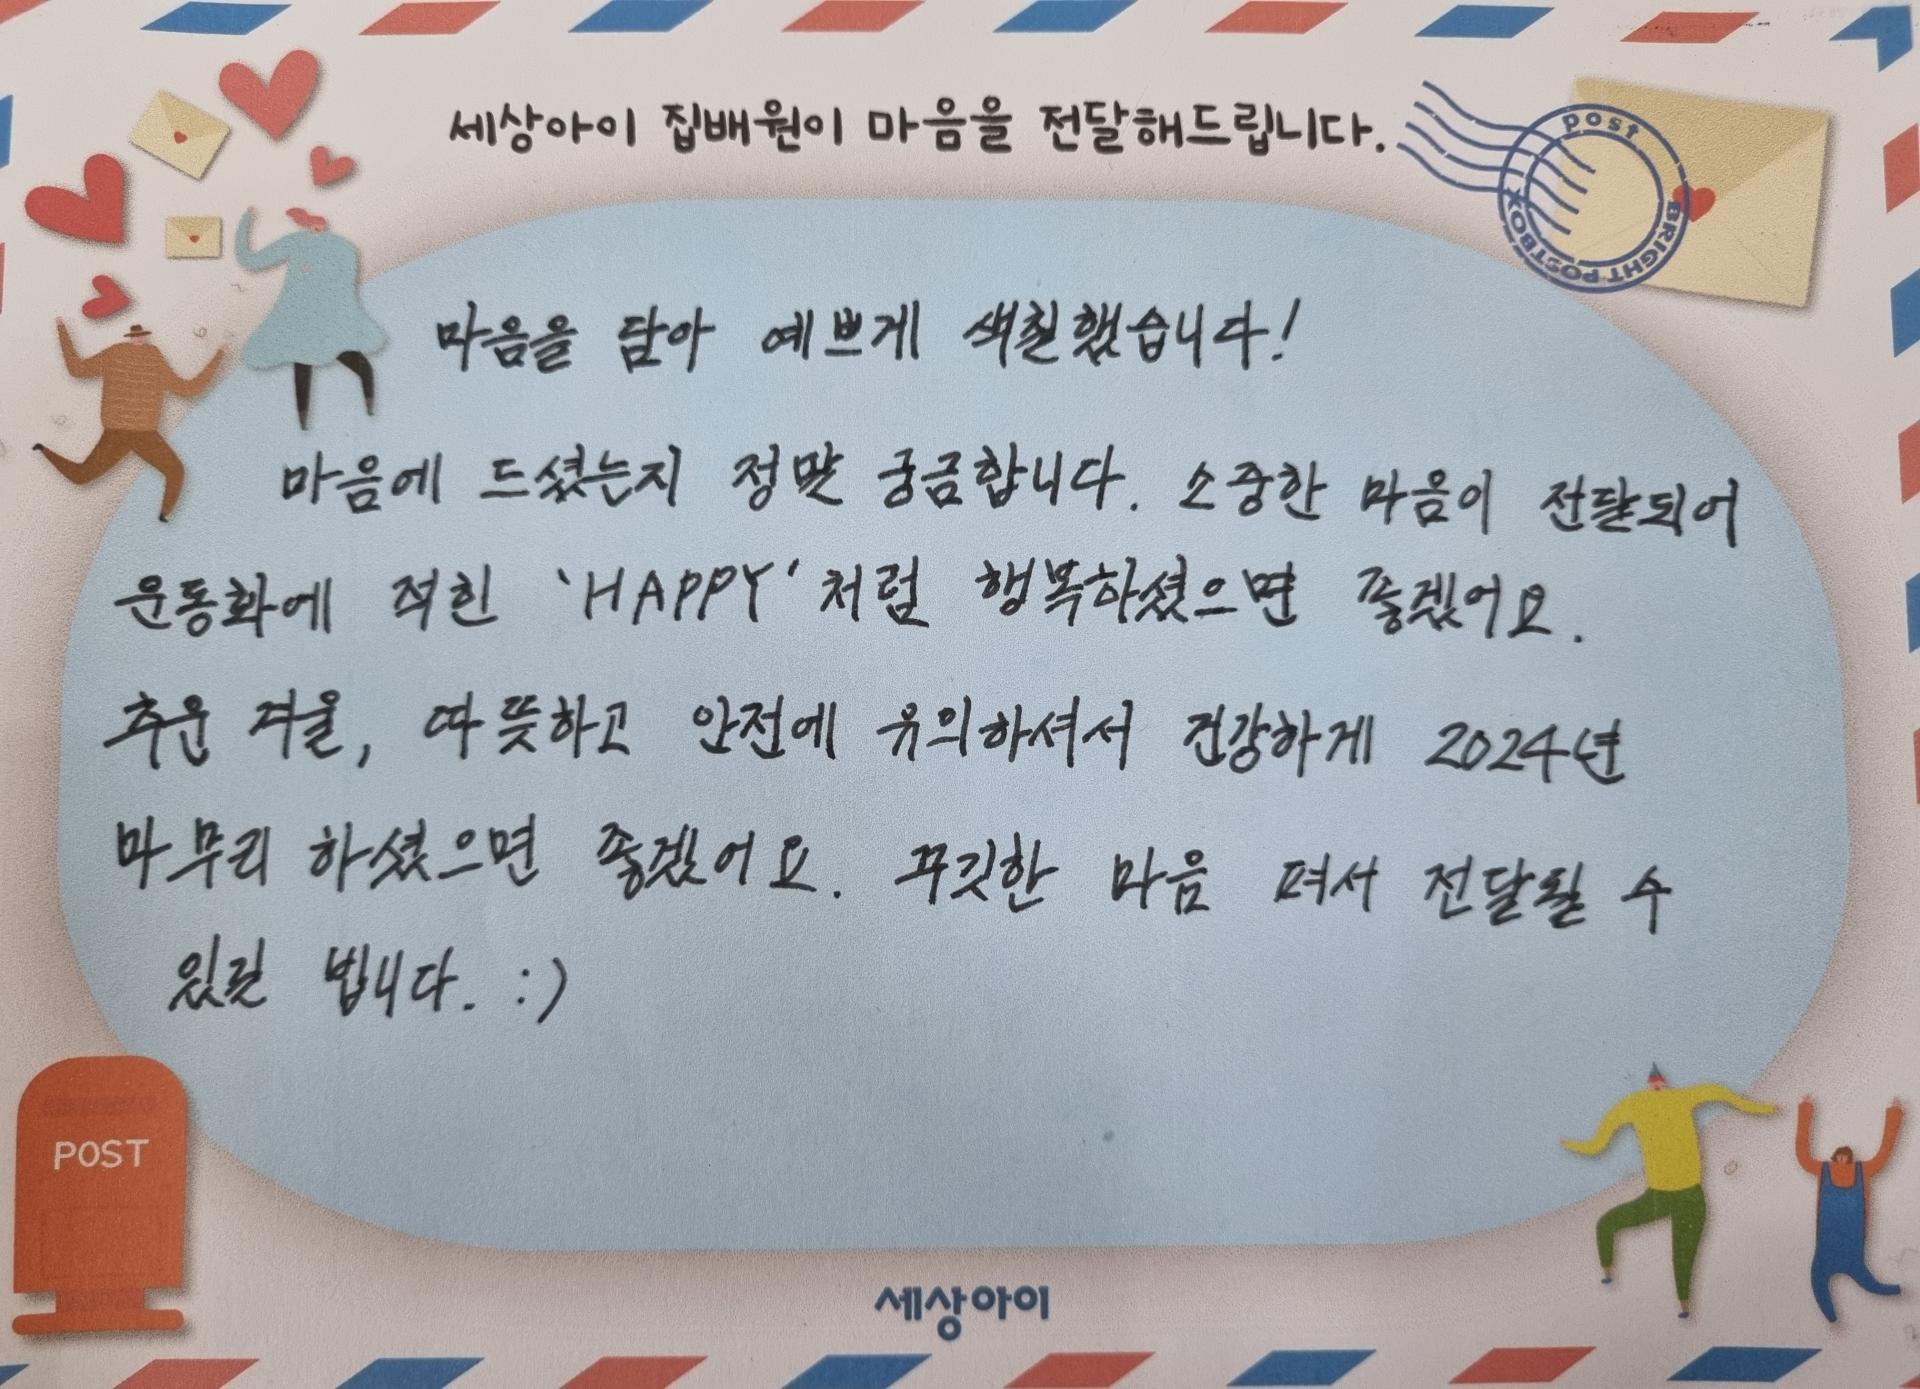 세상아이 집배원이 마음을 전달해드립니다.
post
BRIGHT POSTBOX
마음을 담아 예쁘게 색칠했습니다!
마음에 드셨는지 정말 궁금합니다. 소중한 마음이 전달되어
운동화에 적힌 'HAPPY'처럼 행복하셨으면 좋겠어요.
추운 겨울, 따뜻하고 안전에 유의하셔서 건강하게 2024년
마무리 하셨으면 좋겠어요. 꾸깃한 마음 펴서 전달될 수
있길 빕니다. :)
POST
세상아이